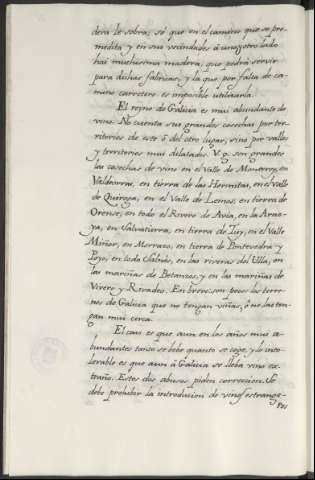 dera le sobra, sé que en el camino que se pre-
medita y en sus vecindades à uno y otro lado
hai muchisima madera, que podrá servir
para dichas fabricas, y la que por falta de ca-
mino carretero es imposible utilizarla.
El reyno de Galicia es mui abundante de
vino. No cuenta sus grandes cosechas por ter-
ritorios de este ò del otro lugar, sino por valles
y territorios mui dilatados. V. g. son grandes
las cosechas de vino en el Valle de Monterrey, en
Valdeorras, en tierra de las Hermitas, en el valle
de Quiroga, en el Valle de Lemos, en tierra de
Orense, en todo el Rivero de Avia, en la Arno-
ya, en Salvatierra, en tierra de Tuy, en el Valle
Miñor, en Morrazo, en tierra de Pontevedra y
Poyo, en todo Salnés, en las riveras del Ulla, en
las mariñas de Betanzos, y en las mariñas de
Vivero y Rivadeo. En breve: son pocos los terre-
nos de Galicia que no tengan viñas, ò no las ten-
gan mui cerca.
El caso es que aun en los años mas a-
bundantes tanto se bebe quanto se coge, y lo into-
lerable es que aun à Galicia se lleba vino ex-
traño. Estos dos abusos piden correccion. Se
debe prohibir la introducion de vinos estrange-
ros